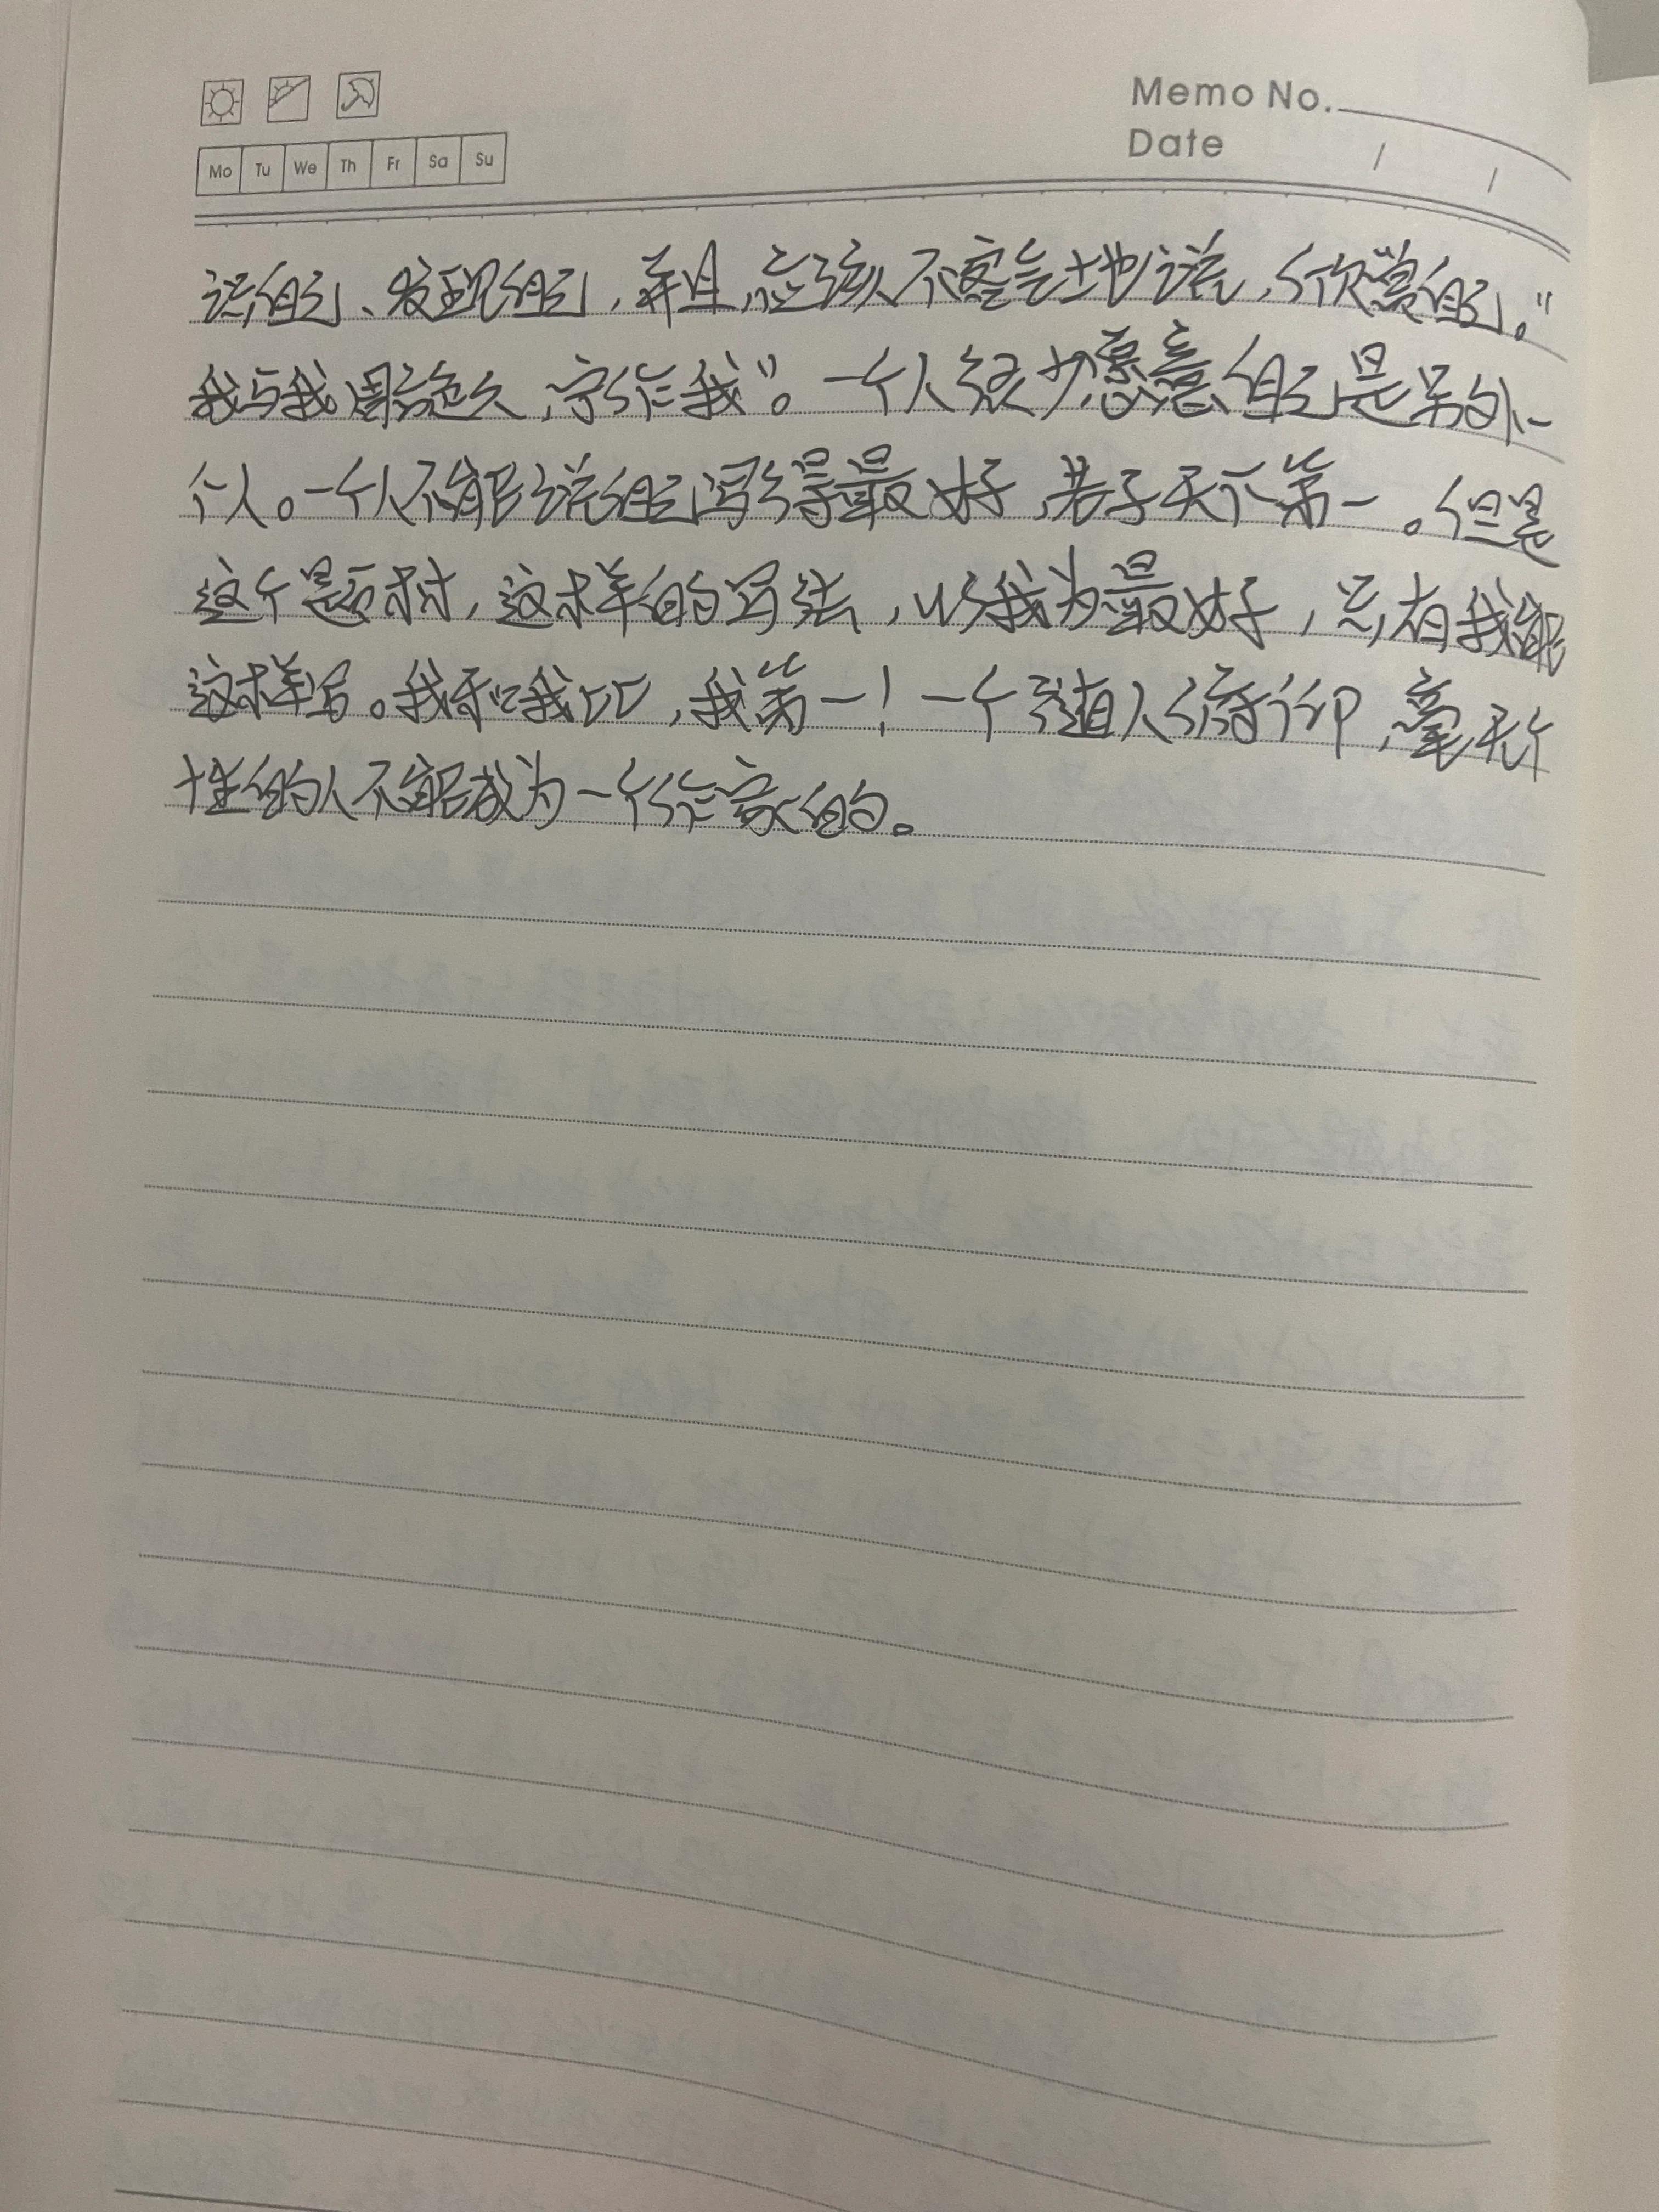 Memo No.
Date / /
Mo Tu We Th Fr Sa Su
识自己、发现自己,并且,应该不客气地说,欣赏自己。"
我与我周旋久,宁作我"。一个人很少愿意自己是另外一
个人。一个人不能说自己写得最好,老子天下第一。但是
这个题材,这样的写法,以我为最好,只有我能
这样写。我和我比,我第一!一个随人俯仰,毫无个
性的人不能成为一个作家的。